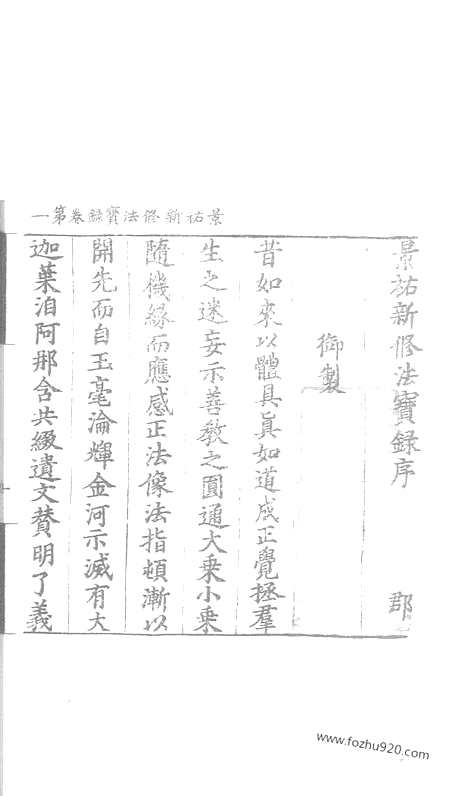 景祐新修法寶錄卷第一
景祐新修法寶錄序 郡
御製
昔如來以體具眞如道成正覺拯羣
生之迷妄示善教之圓通大乘小乘
隨機緣而應感正法像法指頓漸以
開先而自玉毫淪輝金河示滅有大
迦葉洎阿那含共綴遺文賛明了義
www.fozhu920.com